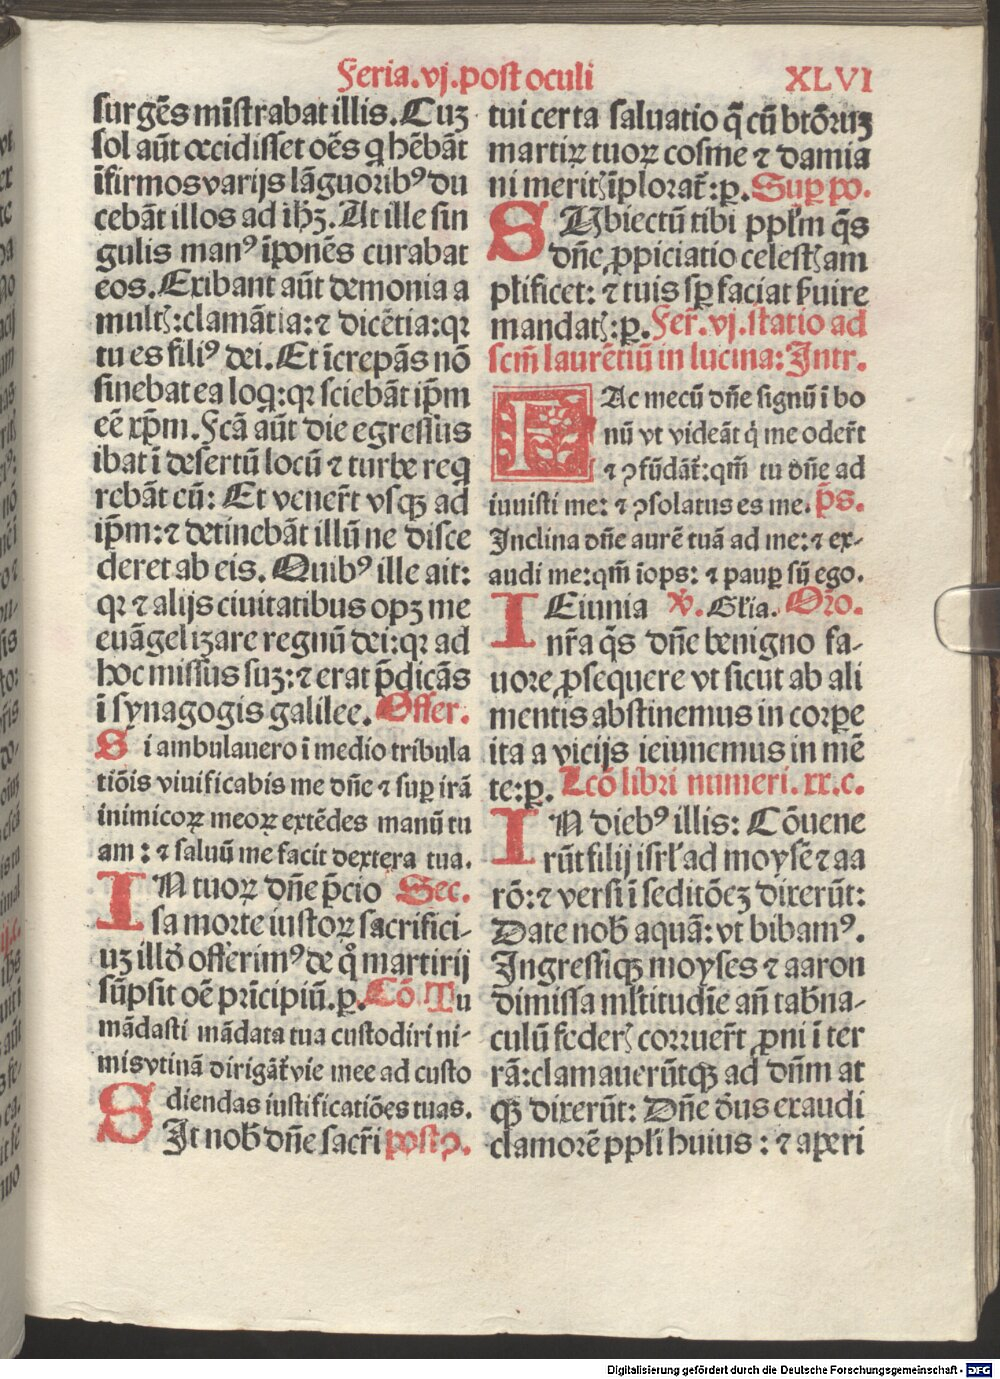 Feria.vj.post oculi
XLVI
surgēs mīstrabat illis. Cuȝ
sol aūt occidisset oēs q hēbāt
īfirmos varijs lāguoribꝰ du
cebāt illos ad ihȝ. At ille sin
gulis manꝰ īponēs curabat
eos. Exibant aūt demonia a
multꝭ: clamātia: ⁊ dicētia: qꝛ
tu es filiꝰ dei. Et īcrepās nō
sinebat ea loq: qꝛ sciebāt ip̄m
eē xp̄m. Fcā aūt die egressus
ibat ī desertū locū ⁊ turbe req
rebāt eū: Et venerūt vsqꝫ ad
ip̄m: ⁊ detinebāt illū ne disce
deret ab eis. Quibꝰ ille ait:
qꝛ ⁊ alijs ciuitatibus opȝ me
euāgelizare regnū dei: qꝛ ad
hoc missus suȝ: ⁊ erat p̄dicās
ī synagogis galilee. Offer.
Si ambulauero ī medio tribula
tiōis viuificabis me dn̄e ⁊ suꝑ irā
inimicoꝝ meoꝝ extēdes manū tu
am: ⁊ saluū me facit dextera tua.
IN tuoꝝ dn̄e p̄cio Sec.
sa morte iustoꝝ sacrifici-
uȝ illd̓ offerimꝰ de qͦ martirij
sūpsit oē prīcipiū. p. Cō Tu
mādasti mādata tua custodiri ni-
mis vtinā dirigāt̄ vie mee ad custo
diendas iustificatiōes tuas.
SIt nob̓ dn̄e sacr̄i postꝯ.
tui certa saluatio q̄ cū btōruȝ
martiꝝ tuoꝝ cosme ⁊ damia
ni meritꝭ īplorat̄: p. Suꝑ po.
SUbiectū tibi ppl̓m q̄s
dn̄e ꝓpiciatio celestꝭ am
plificet: ⁊ tuis sꝑ faciat ẜuire
mandatꝭ: p. Fer̄. vj. statio ad
scm̄ laurētiū in lucina: Intr.
FAc mecū dn̄e signū ī bo
nū vt videāt q̓ me oderūt
⁊ ꝯfūdāt̄: qm̄ tu dn̄e ad
iuuisti me: ⁊ ꝯsolatus es me. p̄s.
Inclina dn̄e aurē tuā ad me: ⁊ ex-
audi me: qm̄ īops: ⁊ pauꝑ sū ego.
IEiunia v̓. Gl̓ia. Oro.
nr̄a q̄s dn̄e benigno fa-
uore ꝓsequere vt sicut ab ali
mentis abstinemus in corꝑe
ita a vicijs ieiunemus in mē
te: p. Lcō libri numeri. xx. c.
IN diebꝰ illis: Cōuene
rūt filij isrl̓ ad moysē ⁊ aa
rō: ⁊ versi ī seditōeȝ dixerūt:
Date nob̓ aquā: vt bibamꝰ.
Ingressusqꝫ moyses ⁊ aaron
dimissa ml̓titudīe an̄ tab̓na-
culū federꝭ corruer̄t ꝓni ī ter
rā: clamauerūtqꝫ ad dn̄m at
qꝫ dixerūt: Dn̄e d̓us exaudi
clamorē ppl̓i huius: ⁊ aperi
Digitalisierung gefördert durch die Deutsche Forschungsgemeinschaft - DFG